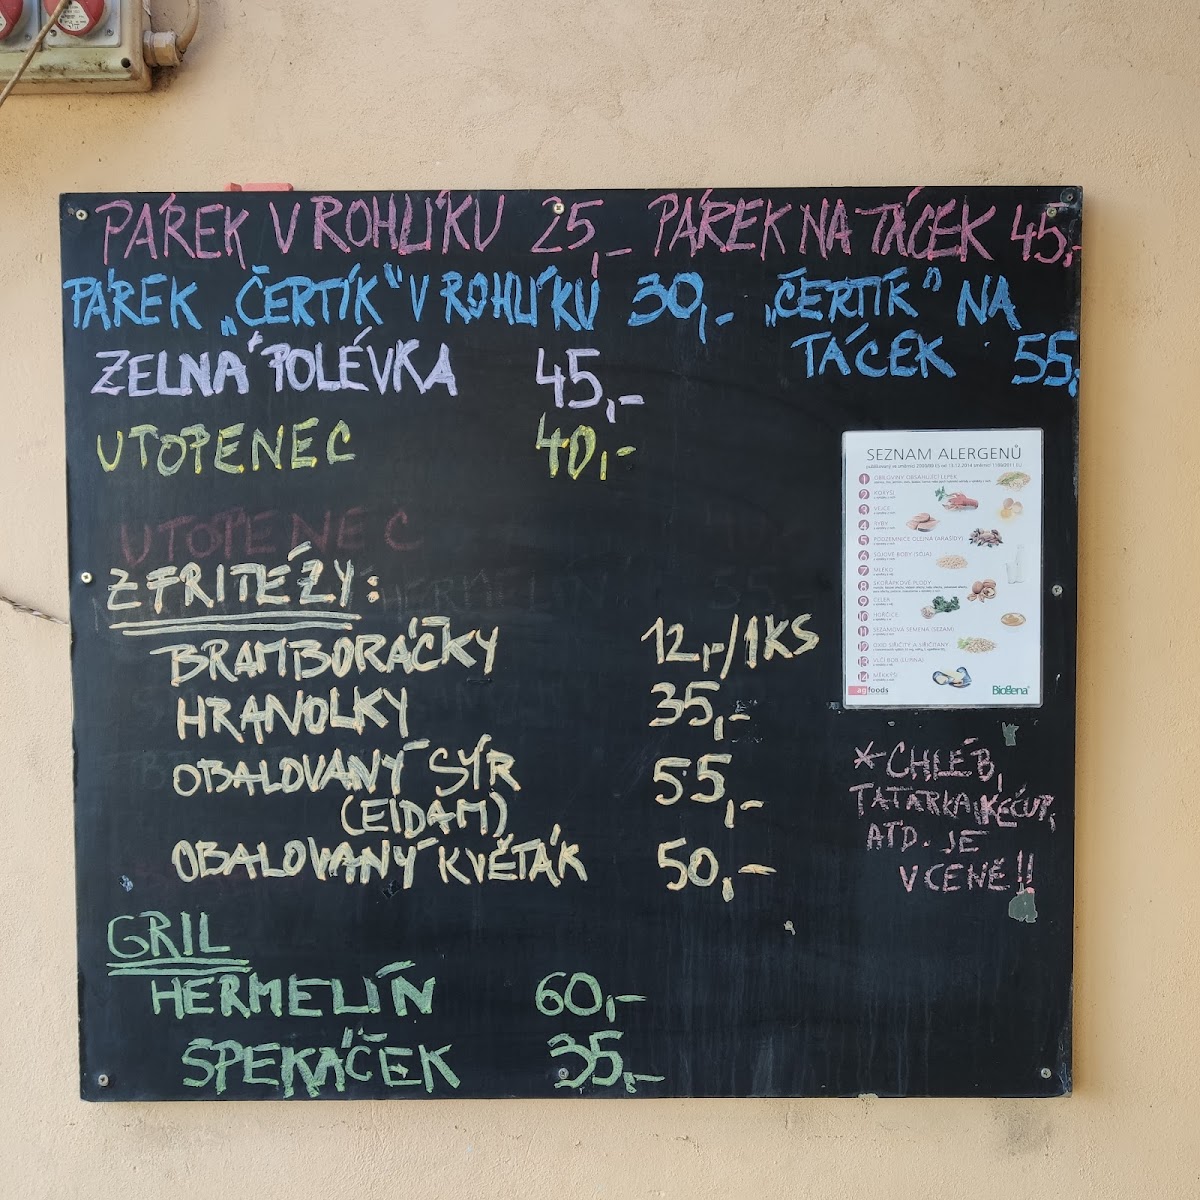 PÁREK V ROHLÍKU 25,- PÁREK NA TÁCEK 45,-
PÁREK „ČERTÍK“ V ROHLÍKU 30,- „ČERTÍK“ NA
TÁCEK 55,-
ZELNÁ POLÉVKA 45,-
UTOPENEC 40,-
UTOPENEC
Z FRITÉZY:
BRAMBORÁČKY 12,-/1KS
HRANOLKY 35,-
OBALOVANÝ SÝR 55,-
(EIDAM)
OBALOVANÝ KVĚTÁK 50,-
GRIL
HERMELÍN 60,-
ŠPEKÁČEK 35,-
SEZNAM ALERGENŮ
1 OBILOVINY OBSAHUJÍCÍ LEPEK
2 KORÝŠI
3 VEJCE
4 RYBY
5 PODZEMNICE OLEJNÁ (ARAŠÍDY)
6 SÓJOVÉ BOBY (SÓJA)
7 MLÉKO
8 SKOŘÁPKOVÉ PLODY
9 CELER
10 HOŘČICE
11 SEZAMOVÁ SEMENA (SEZAM)
12 OXID SIŘIČITÝ A SIŘIČITANY
13 VLČÍ BOB (LUPINA)
14 MĚKKÝŠI
ag foods
Biogena
* CHLÉB,
TATARKA, KEČUP,
ATD. JE
V CENĚ!!